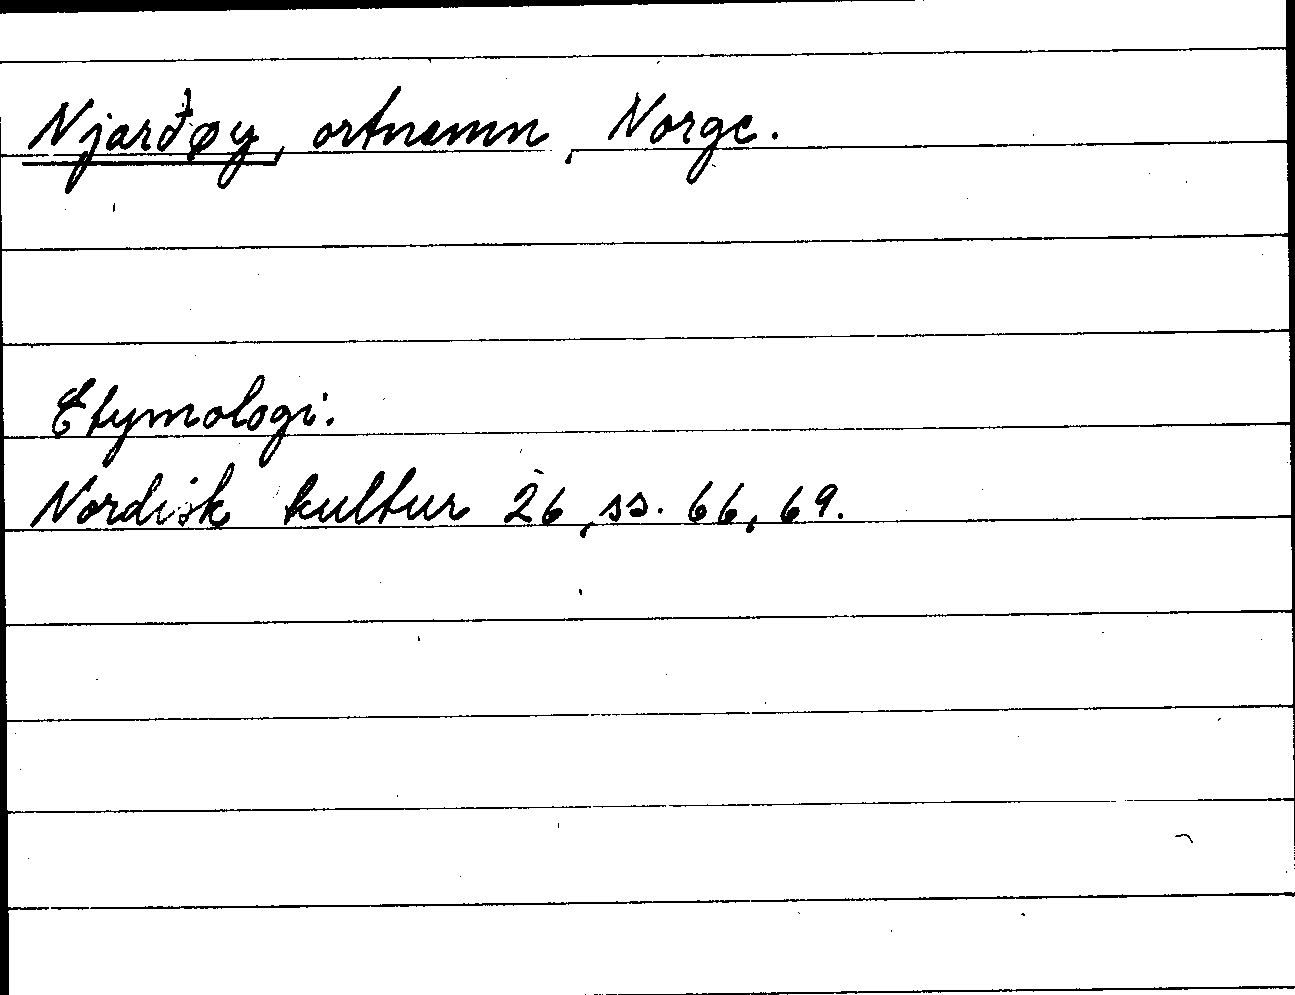 Njarðøy, ortnamn, Norge.
Etymologi.
Nordisk kultur 26, ss. 66, 69.